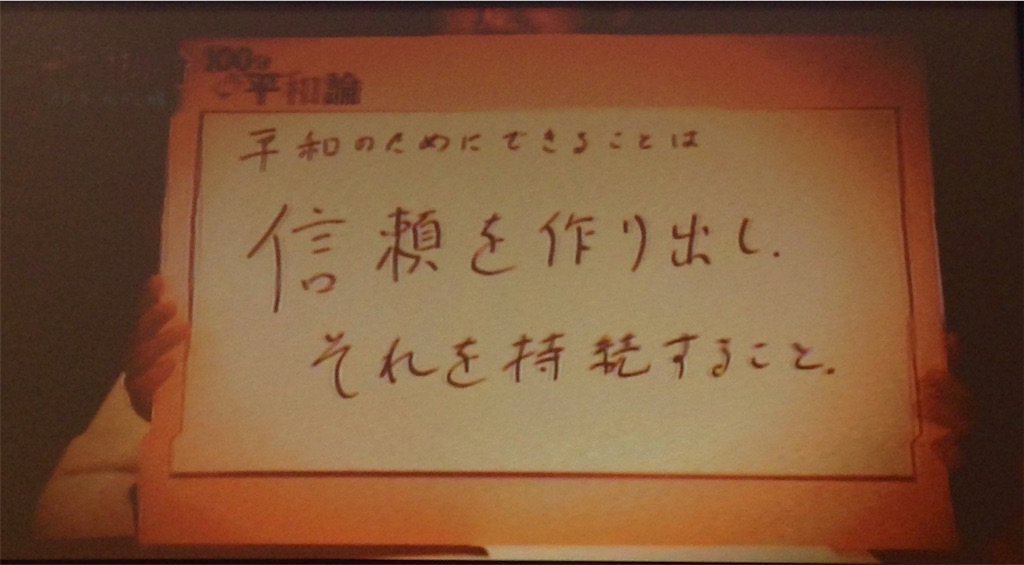 100分
で平和論
平和のためにできることは
信頼を作り出し、
それを持続すること。